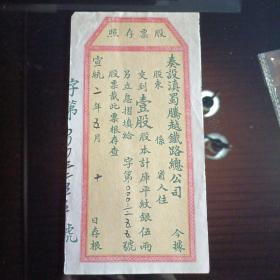 股票存照
奏設滇蜀騰越鐵路總公司 今據
股東 係 省人住
交到壹股股本計庫平紋銀伍兩
另立息摺填給 字第000二五五號
股票截此票根存查
宣統二年五月十日存根
字第 號